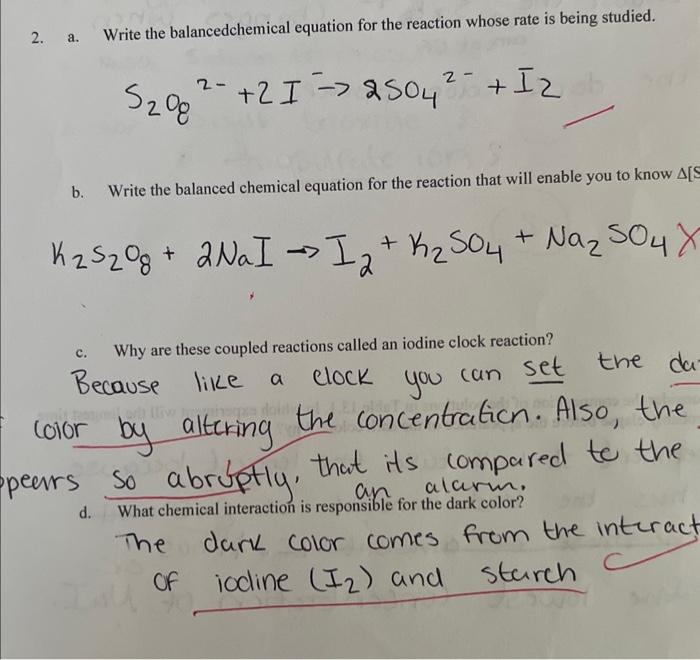 2. a. Write the balancedchemical equation for the reaction whose rate is being studied.
S₂O₈²⁻ + 2I⁻ → 2SO₄²⁻ + I₂
b. Write the balanced chemical equation for the reaction that will enable you to know Δ[S
K₂S₂O₈ + 2NaI → I₂ + K₂SO₄ + Na₂SO₄ X
c. Why are these coupled reactions called an iodine clock reaction?
Because like a clock you can set the da
color by altering the concentration. Also, the
ppears so abruptly, that its compared to the
an alarm.
d. What chemical interaction is responsible for the dark color?
The dark color comes from the interact
of iodine (I₂) and starch